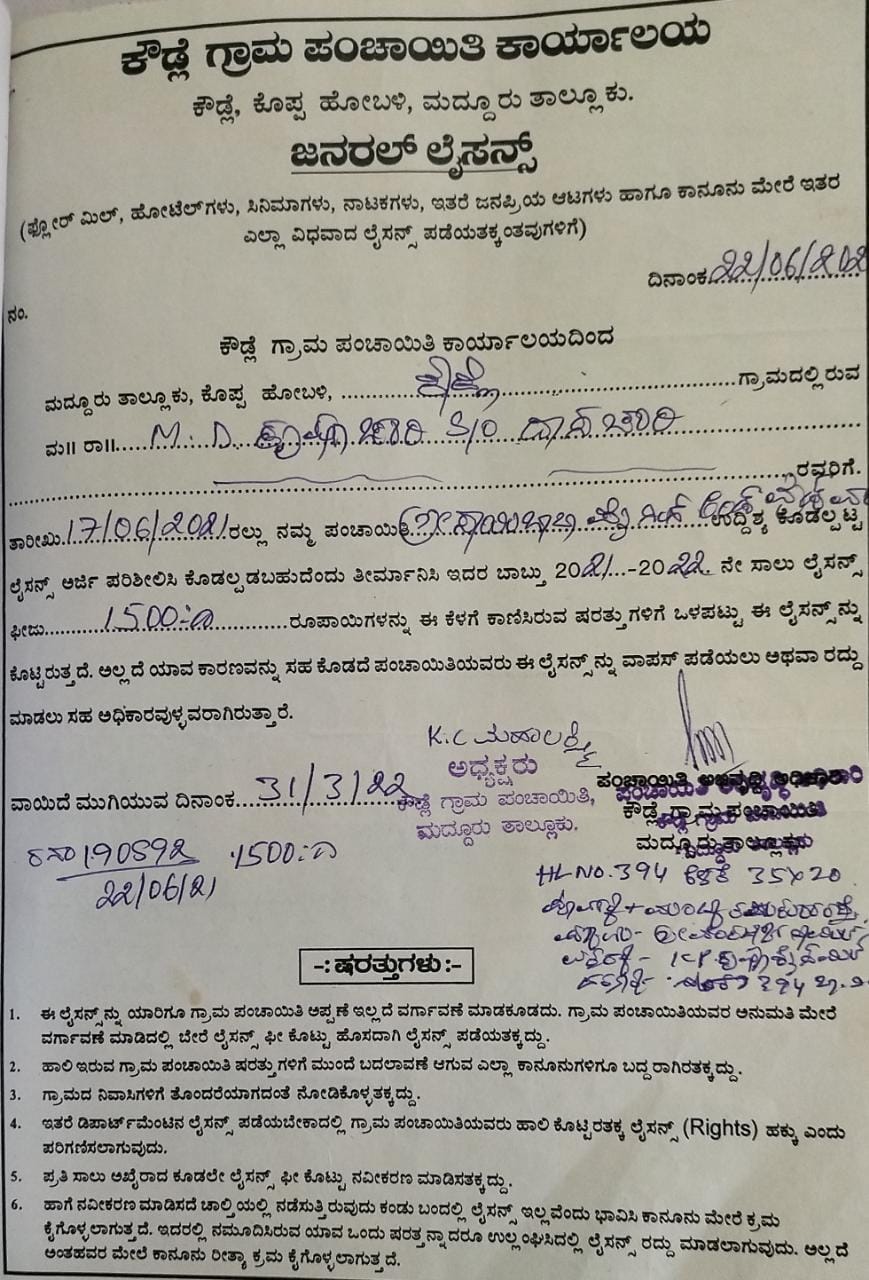 ಕೌಡ್ಲೆ ಗ್ರಾಮ ಪಂಚಾಯಿತಿ ಕಾರ್ಯಾಲಯ
ಕೌಡ್ಲೆ, ಕೊಪ್ಪ ಹೋಬಳಿ, ಮದ್ದೂರು ತಾಲ್ಲೂಕು.
ಜನರಲ್ ಲೈಸನ್ಸ್
(ಫ್ಲೋರ್ ಮಿಲ್, ಹೋಟೆಲ್‌ಗಳು, ಸಿನಿಮಾಗಳು, ನಾಟಕಗಳು, ಇತರೆ ಜನಪ್ರಿಯ ಆಟಗಳು ಹಾಗೂ ಕಾನೂನು ಮೇರೆ ಇತರ
ಎಲ್ಲಾ ವಿಧವಾದ ಲೈಸನ್ಸ್ ಪಡೆಯತಕ್ಕಂತವುಗಳಿಗೆ)
ದಿನಾಂಕ 22/06/202
ನಂ.
ಕೌಡ್ಲೆ ಗ್ರಾಮ ಪಂಚಾಯಿತಿ ಕಾರ್ಯಾಲಯದಿಂದ
ಮದ್ದೂರು ತಾಲ್ಲೂಕು, ಕೊಪ್ಪ ಹೋಬಳಿ, ಕೌಡ್ಲೆ ಗ್ರಾಮದಲ್ಲಿರುವ
ಮ॥ ರಾ॥ M.D. S/o
ರವರಿಗೆ.
ತಾರೀಖು 17/06/2021 ರಲ್ಲು ನಮ್ಮ ಪಂಚಾಯಿತಿ ಉದ್ದಿಶ್ಯ ಕೊಡಲ್ಪಟ್ಟ
ಲೈಸನ್ಸ್ ಅರ್ಜಿ ಪರಿಶೀಲಿಸಿ ಕೊಡಲ್ಪಡಬಹುದೆಂದು ತೀರ್ಮಾನಿಸಿ ಇದರ ಬಾಬ್ತು 2021...-2022. ನೇ ಸಾಲು ಲೈಸನ್ಸ್
ಫೀಜು 1500 ರೂಪಾಯಿಗಳನ್ನು ಈ ಕೆಳಗೆ ಕಾಣಿಸಿರುವ ಷರತ್ತುಗಳಿಗೆ ಒಳಪಟ್ಟು ಈ ಲೈಸನ್ಸ್‌ನ್ನು
ಕೊಟ್ಟಿರುತ್ತದೆ. ಅಲ್ಲದೆ ಯಾವ ಕಾರಣವನ್ನು ಸಹ ಕೊಡದೆ ಪಂಚಾಯಿತಿಯವರು ಈ ಲೈಸನ್ಸ್‌ನ್ನು ವಾಪಸ್ ಪಡೆಯಲು ಅಥವಾ ರದ್ದು
ಮಾಡಲು ಸಹ ಅಧಿಕಾರವುಳ್ಳವರಾಗಿರುತ್ತಾರೆ.
K.C ಮಹಾಲಕ್ಷ್ಮಿ
ಅಧ್ಯಕ್ಷರು
ಕೌಡ್ಲೆ ಗ್ರಾಮ ಪಂಚಾಯಿತಿ,
ಮದ್ದೂರು ತಾಲ್ಲೂಕು.
ಪಂಚಾಯಿತಿ ಅಭಿವೃದ್ಧಿ ಅಧಿಕಾರಿ
ಕೌಡ್ಲೆ ಗ್ರಾಮ ಪಂಚಾಯಿತಿ
ಮದ್ದೂರು ತಾಲ್ಲೂಕು
ವಾಯಿದೆ ಮುಗಿಯುವ ದಿನಾಂಕ 31/3/22
190592 1500
22/06/21
HL NO. 394 35X20
-: ಷರತ್ತುಗಳು :-
1. ಈ ಲೈಸನ್ಸ್‌ನ್ನು ಯಾರಿಗೂ ಗ್ರಾಮ ಪಂಚಾಯಿತಿ ಅಪ್ಪಣೆ ಇಲ್ಲದೆ ವರ್ಗಾವಣೆ ಮಾಡಕೂಡದು. ಗ್ರಾಮ ಪಂಚಾಯಿತಿಯವರ ಅನುಮತಿ ಮೇರೆ
ವರ್ಗಾವಣೆ ಮಾಡಿದಲ್ಲಿ ಬೇರೆ ಲೈಸನ್ಸ್ ಫೀ ಕೊಟ್ಟು ಹೊಸದಾಗಿ ಲೈಸನ್ಸ್ ಪಡೆಯತಕ್ಕದ್ದು.
2. ಹಾಲಿ ಇರುವ ಗ್ರಾಮ ಪಂಚಾಯಿತಿ ಷರತ್ತುಗಳಿಗೆ ಮುಂದೆ ಬದಲಾವಣೆ ಆಗುವ ಎಲ್ಲಾ ಕಾನೂನುಗಳಿಗೂ ಬದ್ದರಾಗಿರತಕ್ಕದ್ದು.
3. ಗ್ರಾಮದ ನಿವಾಸಿಗಳಿಗೆ ತೊಂದರೆಯಾಗದಂತೆ ನೋಡಿಕೊಳ್ಳತಕ್ಕದ್ದು.
4. ಇತರೆ ಡಿಪಾರ್ಟ್‌ಮೆಂಟಿನ ಲೈಸನ್ಸ್ ಪಡೆಯಬೇಕಾದಲ್ಲಿ ಗ್ರಾಮ ಪಂಚಾಯಿತಿಯವರು ಹಾಲಿ ಕೊಟ್ಟಿರತಕ್ಕ ಲೈಸನ್ಸ್ (Rights) ಹಕ್ಕು ಎಂದು
ಪರಿಗಣಿಸಲಾಗುವುದು.
5. ಪ್ರತಿ ಸಾಲು ಅಖೈರಾದ ಕೂಡಲೇ ಲೈಸನ್ಸ್ ಫೀ ಕೊಟ್ಟು ನವೀಕರಣ ಮಾಡಿಸತಕ್ಕದ್ದು.
6. ಹಾಗೆ ನವೀಕರಣ ಮಾಡಿಸದೆ ಚಾಲ್ತಿಯಲ್ಲಿ ನಡೆಸುತ್ತಿರುವುದು ಕಂಡು ಬಂದಲ್ಲಿ ಲೈಸನ್ಸ್ ಇಲ್ಲವೆಂದು ಭಾವಿಸಿ ಕಾನೂನು ಮೇರೆ ಕ್ರಮ
ಕೈಗೊಳ್ಳಲಾಗುತ್ತದೆ. ಇದರಲ್ಲಿ ನಮೂದಿಸಿರುವ ಯಾವ ಒಂದು ಷರತ್ತನ್ನಾದರೂ ಉಲ್ಲಂಘಿಸಿದಲ್ಲಿ ಲೈಸನ್ಸ್ ರದ್ದು ಮಾಡಲಾಗುವುದು. ಅಲ್ಲದೆ
ಅಂತಹವರ ಮೇಲೆ ಕಾನೂನು ರೀತ್ಯಾ ಕ್ರಮ ಕೈಗೊಳ್ಳಲಾಗುತ್ತದೆ.